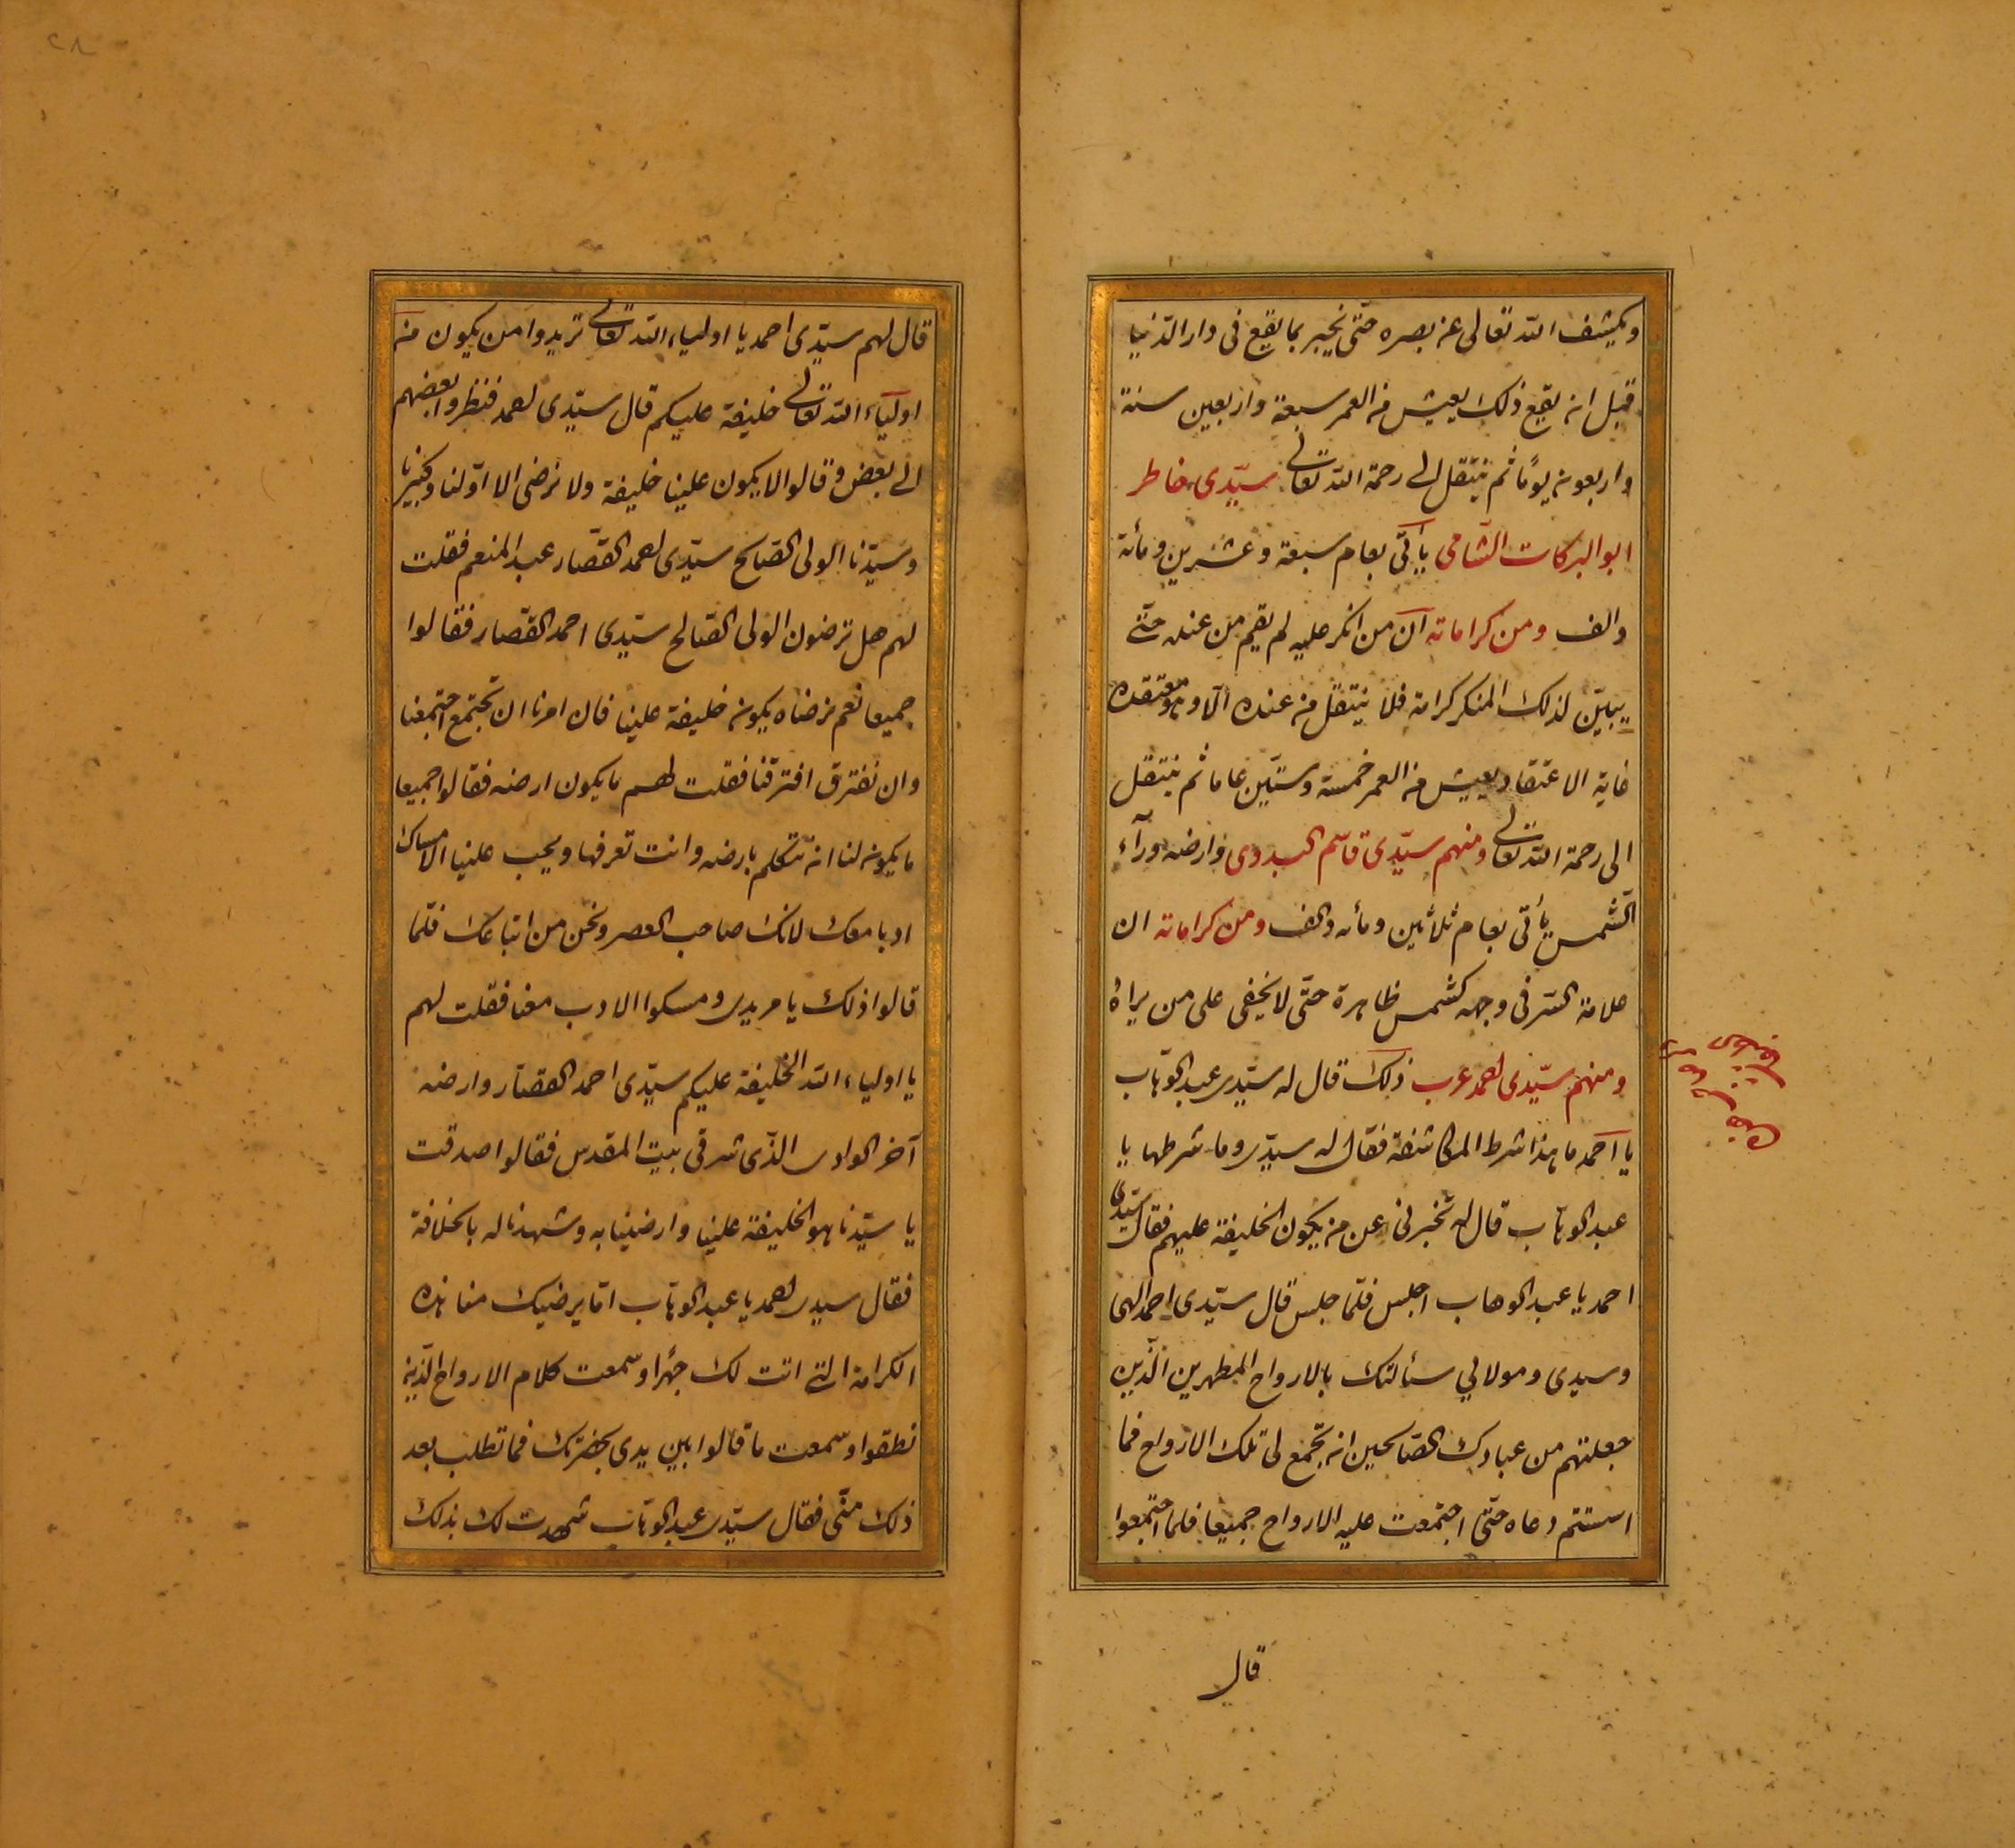 ويكشف الله تعالى عن بصره حتّى يخبر بما يقع فى دار الدّنيا
قبل ان يقع ذلك يعيش من العمر سبعة واربعين سنة
واربعون يومًا ثم ينتقل الى رحمة الله تعالى سيّدى خاطر
ابو البركات الشّامى يأتى بعام سبعة وعشرين ومأئة
والف ومن كراماته ان من انكر عليه لم يقم من عنده حتى
يبيّن لذلك المنكر كرامة فلا ينتقل من عنده الّا وهو معتقده
غاية الاعتقاد يعيش من العمر خمسة وستّين عاما ثم ينتقل
الى رحمة الله تعالى ومنهم سيّدى قاسم البدوى وارضه ورآء
الشّمس يأتى بعام ثلاثين ومأئه والف ومن كراماته ان
علامة السّر فى وجهه كشمس ظاهرة حتّى لا يخفى على من يراه
ومنهم سيّدى احمد عرب ذلك قال له سيّدى عبد الوهّاب
يا احمد ما هذا شرط المكاشفة فقال له سيدى وما شرطها يا
عبد الوهّاب قال له تخبرنى عن من يكون الخليفة عليهم فقال سيّدى
احمد يا عبد الوهاب اجلس فلمّا جلس قال سيّدى احمد الهى
وسيدى ومولاي سئالتك بالارواح المطهرين الّذين
جعلتهم من عبادك الصّالحين ان تجمع لى تلك الارواح فما
استتم دعاه حتّى اجتمعت عليه الارواح جميعا فلما اجتمعوا
قال
٢٨
قال لهم سيّدى احمد يا اولياء الله تعالى تريدوا من يكون من
اولياء الله تعالى خليفة عليكم قال سيّدى احمد فنظروا بعضهم
الى بعض وقالوا لا يكون علينا خليفة ولا نرضى الا اوّلنا وكبيرنا
وسيّدنا الولى الصّالح سيّدى احمد القصّار عبد المنعم فقلت
لهم هل ترضون الولى الصّالح سيّدى احمد القصّار فقالوا
جميعا نعم نرضاه يكون خليفة علينا فان امرنا ان نجتمع اجتمعنا
وان نفترق افترقنا فقلت لهم ما يكون ارضه فقالوا جميعا
ما يكون لنا ان نتكلم بارضه وانت تعرفها ويجب علينا الامساك
ادبا معك لانك صاحب العصر ونحن من اتباعك فلمّا
قالوا ذلك يا مريدى ومسكوا الادب معنا فقلت لهم
يا اولياء الله الخليفة عليكم سيّدى احمد القصّار وارضه
آخر الوادى الذّى شرقى بيت المقدس فقالوا صدقت
يا سيّدنا هو الخليفة علينا وارضينا به وشهدنا له بالخلافة
فقال سيدى احمد يا عبد الوهّاب امّا يرضيك منا هذه
الكرامة التى اتت لك جهرا وسمعت كلام الارواح الّذين
نطقوا وسمعت ما قالوا بين يدى بحضرتك فما تطلب بعد
ذلك منّى فقال سيّدى عبد الوهّاب شهدت لك بذلك